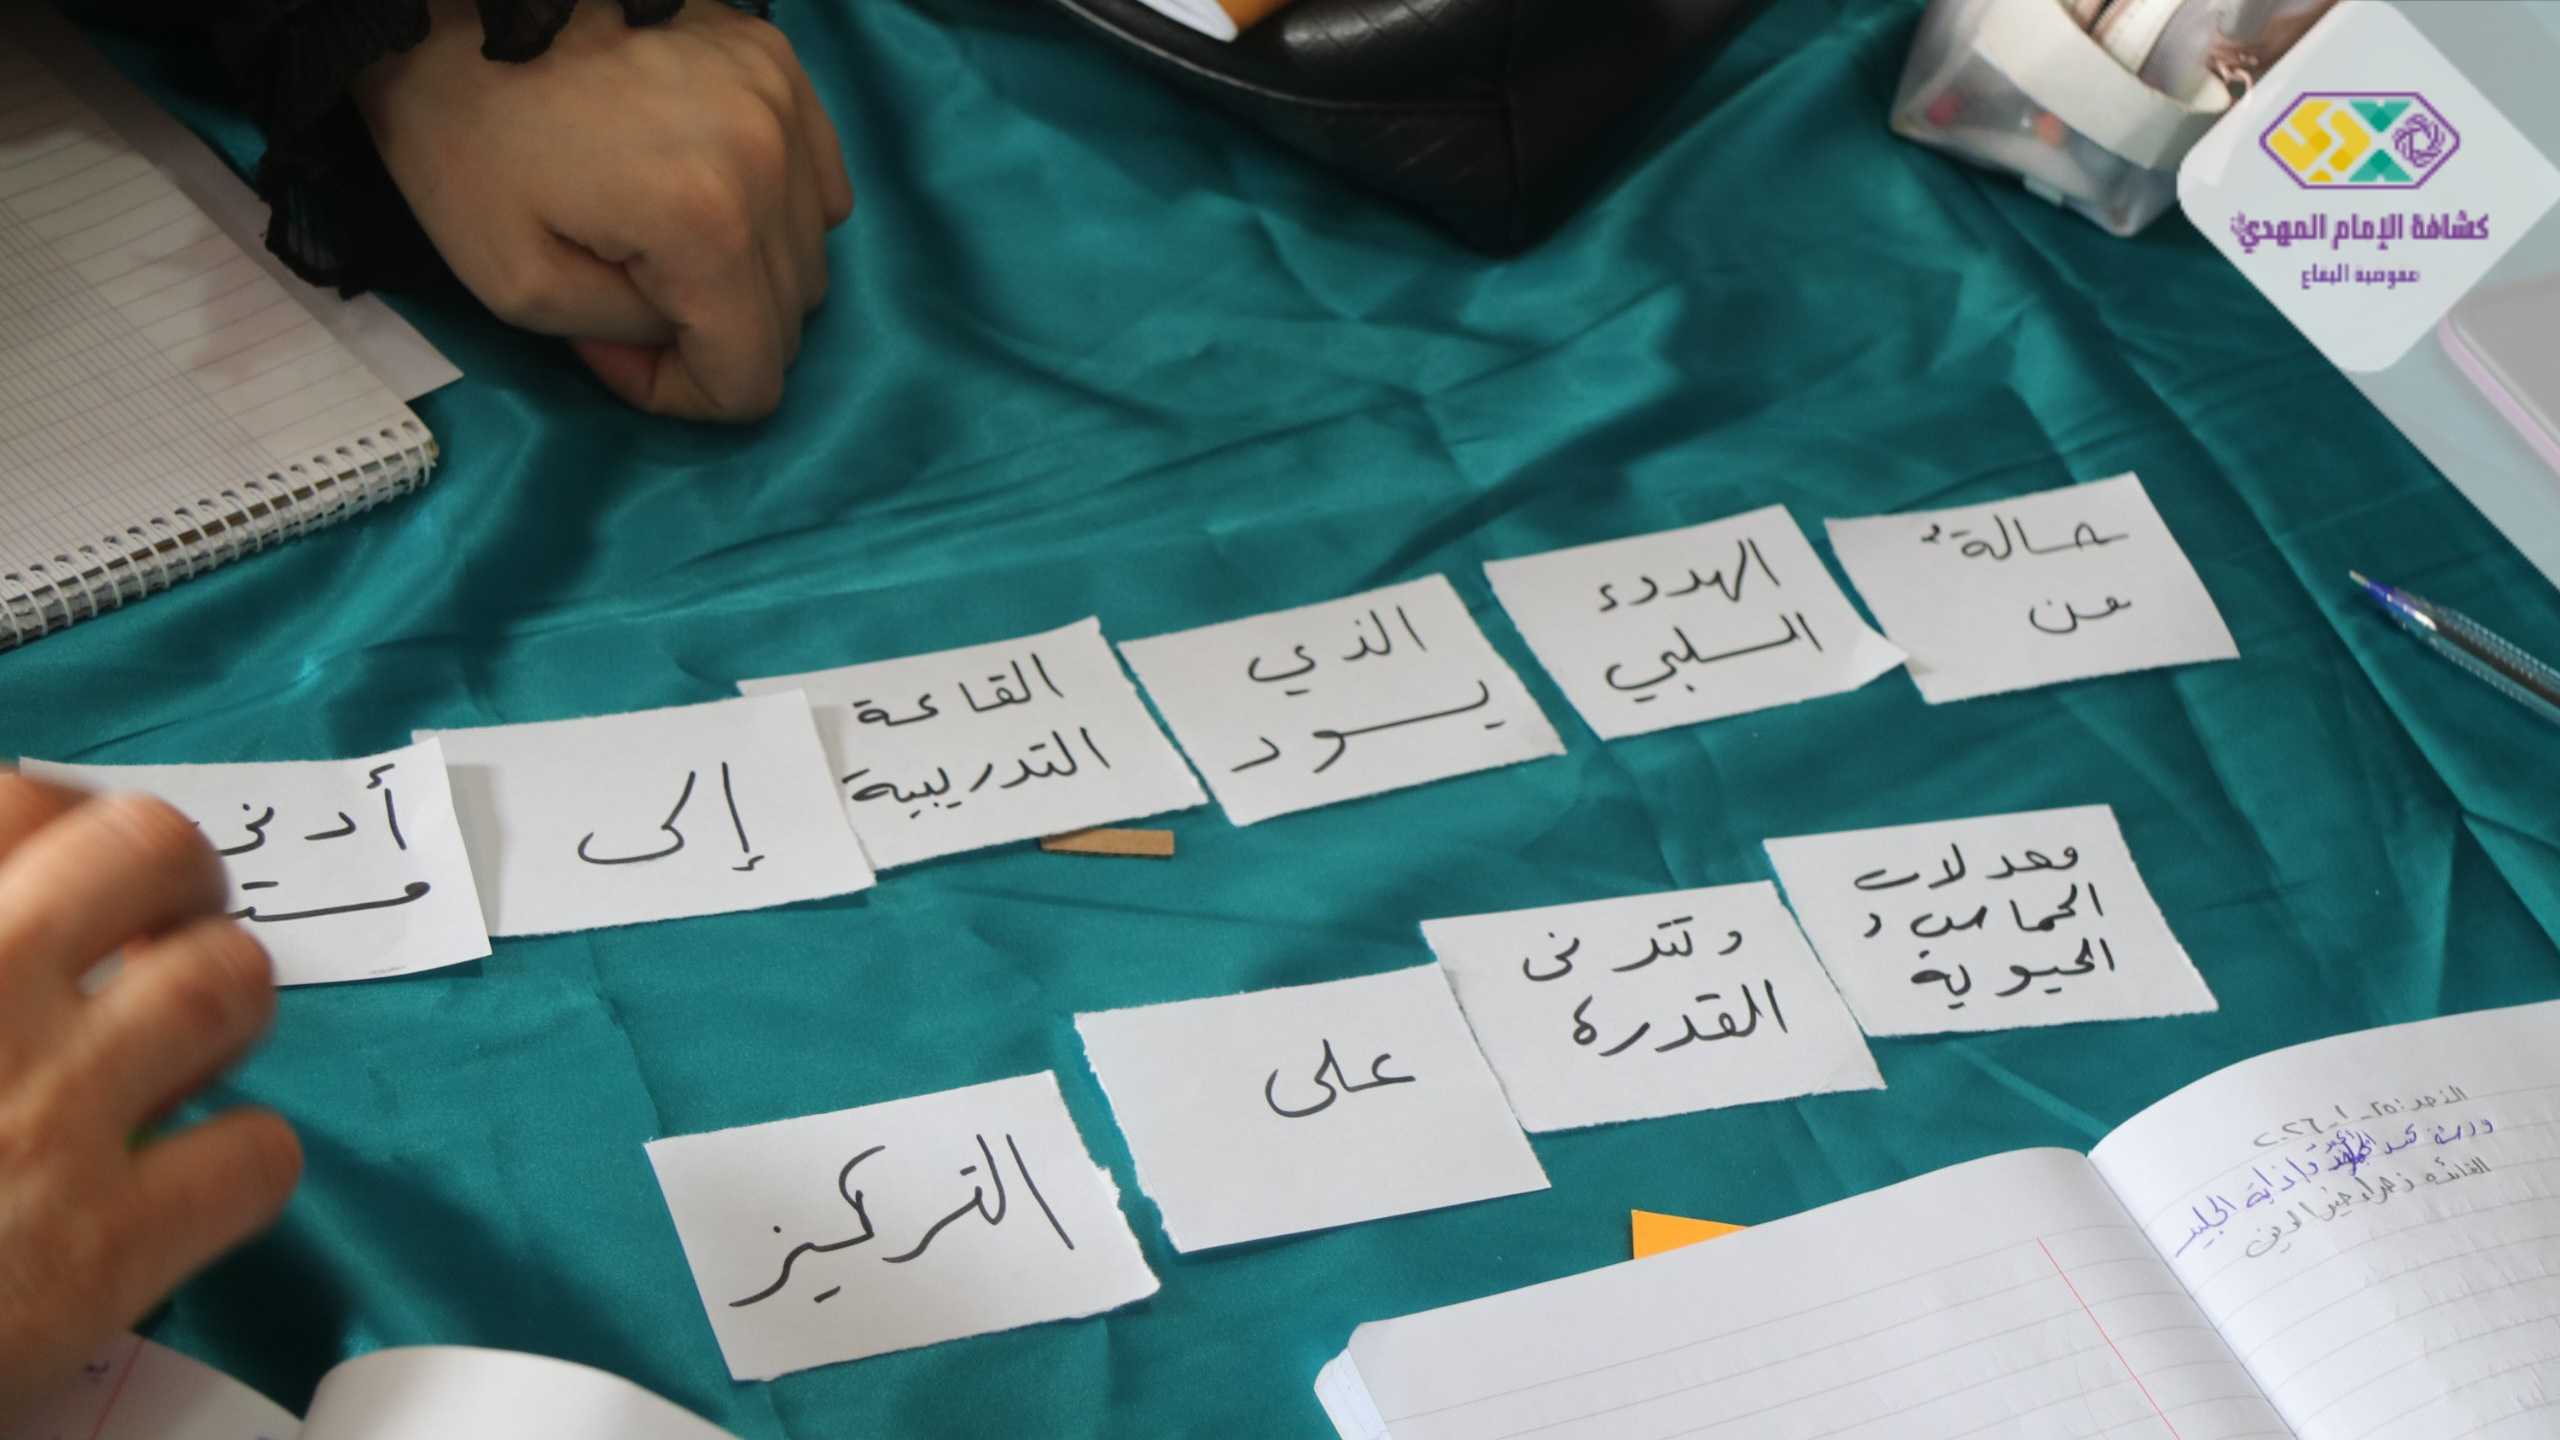 كشافة الإمام المهدي
مفوضية البقاع
حالةٌ
من
الهدوء
السلبي
الذي
يسود
القاعة
التدريبية
إلى
أدنى
معدلات
الحماس و
الحيوية
وتتدنى
القدرة
على
التركيز
الأحد: ٢٥-١-٢٠٢٦
ورشة كسر
وإذابة الجليد
القائدة زهراء خير الدين